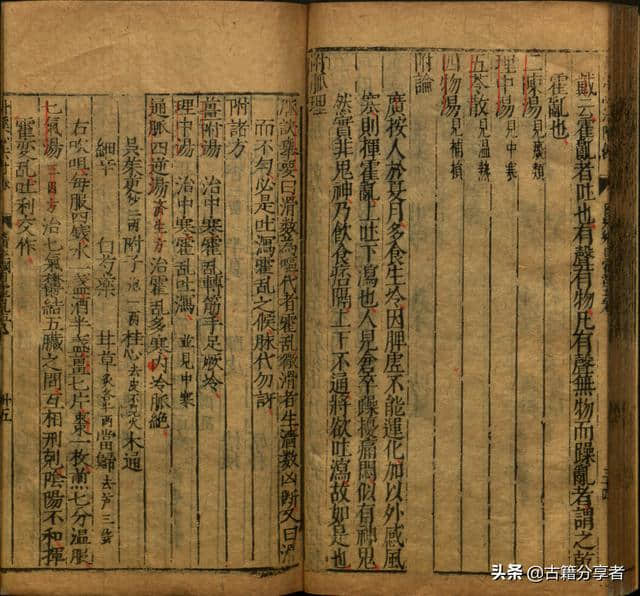 戴云霍亂者吐也有聲有物凡有聲無物而躁亂者謂之乾
霍亂也
二陳湯見痰類
理中湯見中寒
五苓散見温熱
四物湯見補損
附論
廣按人於夏月多食生冷因脾虚不能運化加以外感風
寒則揮霍亂上吐下瀉也人見倉卒躁擾痛悶似有神鬼
然實非鬼神乃飲食痞隔上下不通將欲吐瀉故如是也
附脉理
脉訣舉要曰滑數為嘔代者霍亂微滑者生濇數凶斷又曰滑
而不勻必是吐瀉霍亂之候脉代勿訝
附諸方
薑附湯 治中寒霍亂轉筋手足厥冷
理中湯 治中寒霍亂吐瀉 並見中寒
通脉四逆湯濟生方 治霍亂多寒肉冷脉絶
吳茱萸炒二兩附子炮一兩桂心去皮不見火木通
細辛 白芍藥 甘草炙各半兩當歸去芦三錢
右㕮咀每服四錢水一盞酒半盞薑七片棗一枚煎七分温服
七氣湯三因方 治七氣鬱結五臟之間互相刑剋陰陽不和揮
霍變亂吐利交作
卅五
头条 @古籍分享者